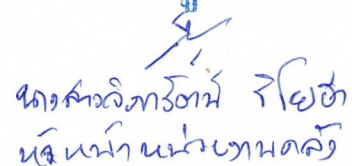 นางสาวจิภารัตน์ ริโยธา
หัวหน้าหน่วยงานคลัง